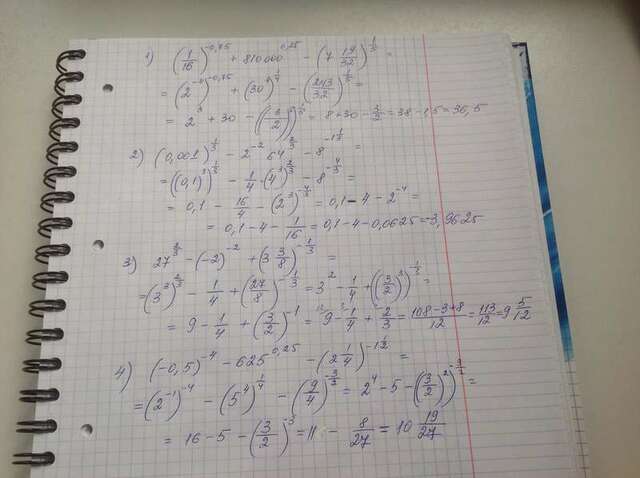 1) (1/16)^(-0,75) + 810000^(0,25) - (7 19/32)^(1/5) =
= (2^(-4))^(-0,75) + (30^4)^(1/4) - (243/32)^(1/5) =
= 2^3 + 30 - ((3/2)^5)^(1/5) = 8+30 - 3/2 = 38 - 1,5 = 36,5
2) (0,001)^(1/3) - 2^(-2) · 64^(2/3) - 8^(-1 1/3) =
= ((0,1)^3)^(1/3) - 1/4 · (4^3)^(2/3) - 8^(-4/3) =
= 0,1 - 16/4 - (2^3)^(-4/3) = 0,1 - 4 - 2^(-4) =
= 0,1 - 4 - 1/16 = 0,1 - 4 - 0,0625 = -3,9625
3) 27^(2/3) - (-2)^(-2) + (3 3/8)^(-1/3) =
= (3^3)^(2/3) - 1/4 + (27/8)^(-1/3) = 3^2 - 1/4 + ((3/2)^3)^(-1/3) =
= 9 - 1/4 + (3/2)^(-1) = 9 - 1/4 + 2/3 = (108-3+8)/12 = 113/12 = 9 5/12
4) (-0,5)^(-4) - 625^(0,25) - (2 1/4)^(-1 1/2) =
= (2^(-1))^(-4) - (5^4)^(1/4) - (9/4)^(-3/2) = 2^4 - 5 - ((3/2)^2)^(-3/2) =
= 16 - 5 - (3/2)^(-3) = 11 - 8/27 = 10 19/27